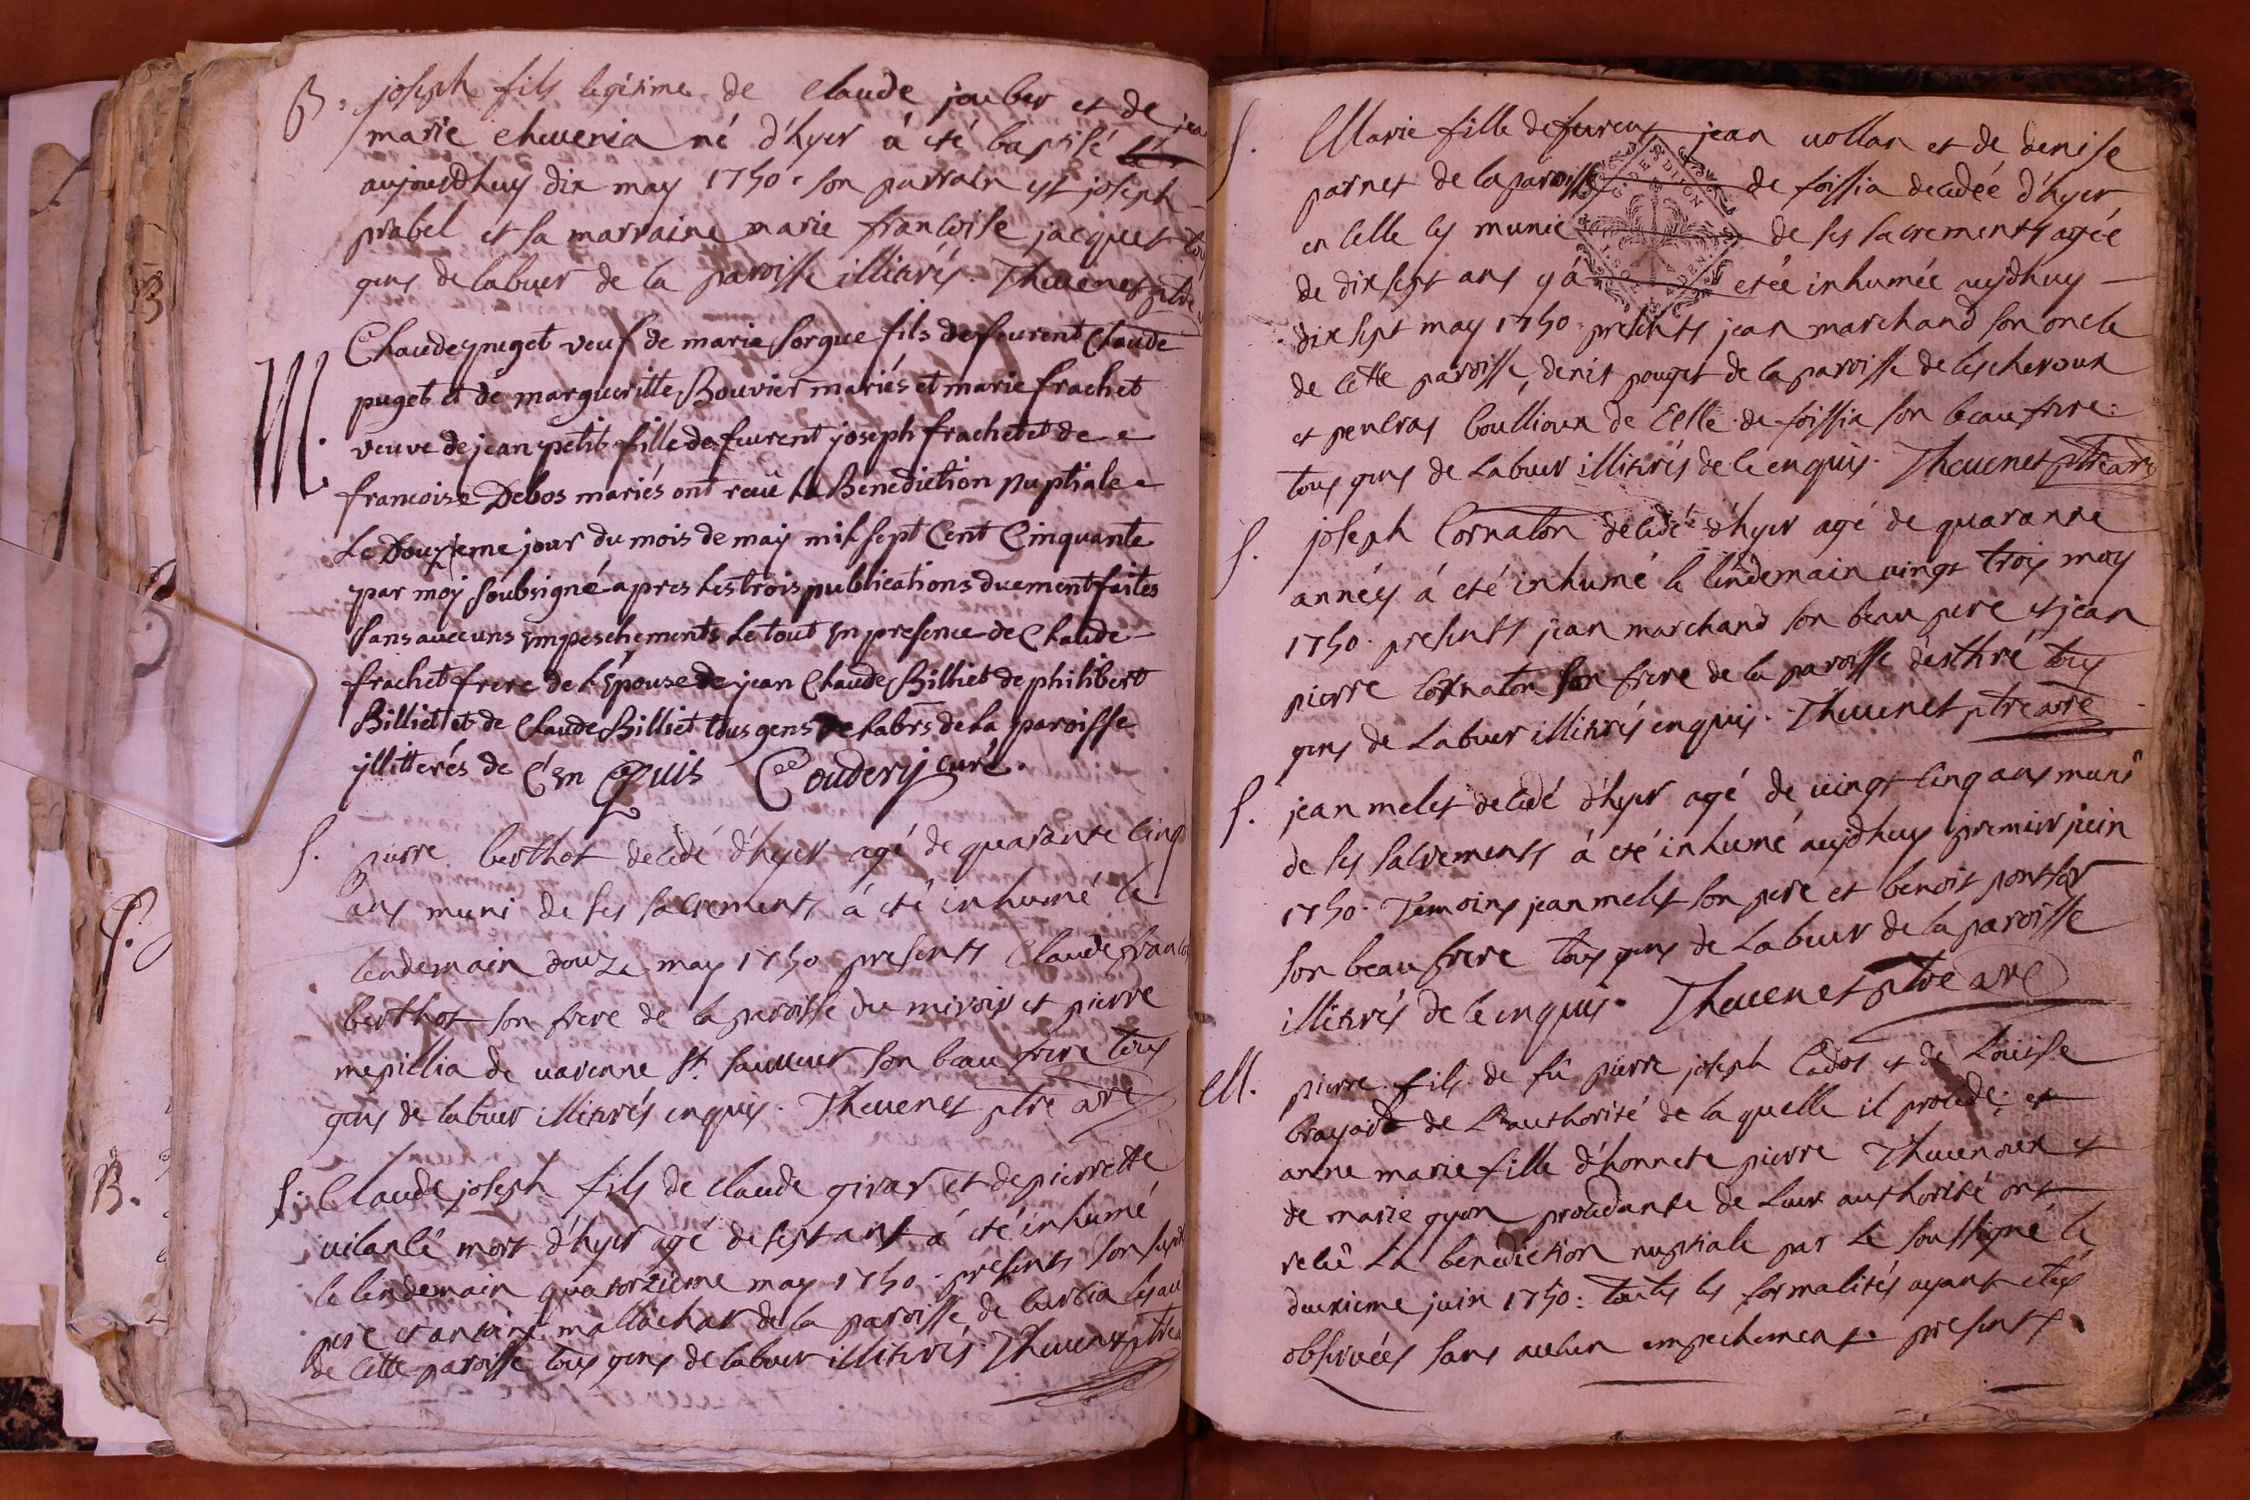 B. joseph fils legitime de claude jouber et de jea
marie né d'hyer á eté baptisé
aujourdhuy dix may 1750. son parrain est joseph
prabel et sa marraine marie francoise jacquet tous
gens de labeur de la paroisse illitirés. Thevenet ptre
M. Claude puget veuf de marie Sorgue fils de feurent Claude
puget et de margueritte Bouvier mariés et marie frachet
veuve de jean petit fille de feurent joseph frachet et de
francoise Debos mariés ont reçû la Benediction nuptiale
Le Douzieme jour du mois de maÿ mil sept Cent Cinquante
par moÿ soubsigné apres les trois publications duement faites
sans aucuns empeschements Le tout En presence de Claude
frachet frere de l'Epouse de jean Claude Billiet de philibert
Billiet et de Claude Billiet tous gens de labrs de la paroisse
illitterés de C'En Equis Couderÿ curé.
S. pierre berthot decedé d'hyer agé de quarante cinq
ans muni de ses sacrements á eté inhumé le
lendemain douze may 1750 presents Claude
berthot son frere de la paroisse du miroir et pierre
mepillia de varenne St. sauveur son beau frere tous
gens de labeur illitirés enquis. Thevenet ptre
S. Claude joseph fils de claude girar et de pierrette
mort d'hyer agé de sept ans á eté inhumé
le lendemain quatorzieme may 1750. presents son
pere et antoine de la paroisse de
de cette paroisse tous gens de labeur illitirés. Thevenet ptre
S. Marie fille de feurent jean vollan et de denise
parnet de la paroisse de foissia decedée d'hyer
en celle cy munie de ses sacrements agée
de dix sept ans y á eteé inhumée aujdhuy
dix sept may 1750. presents jean marchand son oncle
de cette paroisse, denis pouget de la paroisse de lescheroux
et pencras boullioux de celle de foissia son beau frere.
tous gens de Labeur illitirés de ce enquis. Thevenet ptre
S. joseph Cornaton decedé d'hyer agé de quarante
années á eté inhumé le lendemain vingt trois may
1750. presents jean marchand son beau pere et jean
pierre Cornaton son frere de la paroisse detthré tous
gens de Labeur illitirés enquis. Thevenet ptre
S. jean melet decedé d'hyer agé de vingt cinq ans muni
de ses sacrements á eté inhumé aujdhuy premier juin
1750. Temoins jean melet son pere et benoit
son beau frere tous gens de Labeur de la paroisse
illitirés de ce enquis. Thevenet ptre
M. pierre fils de fû pierre joseph Cadot et de Louise
brayard de L'authorité de la quelle il procede, et
anne marie fille d'honnete pierre Thevenoux et
de marie gyon procedante de Leur authorité ont
recû La benediction nuptiale par Le soussigné le
deuxieme juin 1750: toutes les formalités ayant etés
observées sans aucun empechement. presents